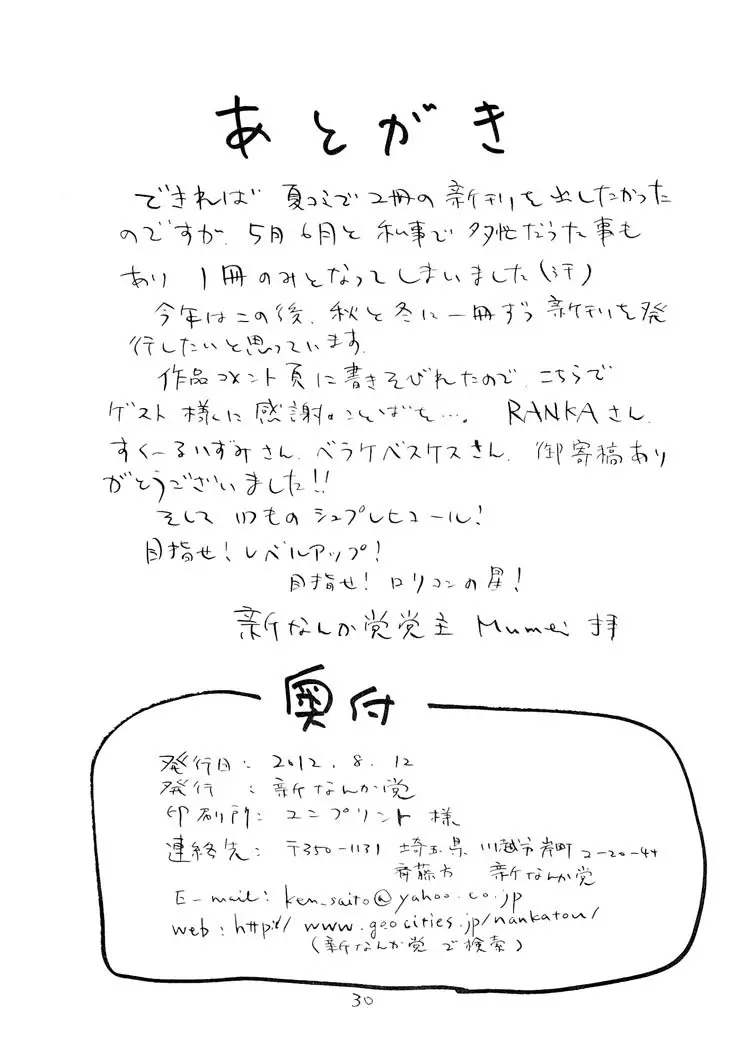 あとがき
できれば 夏コミで2冊の新刊を出したかった
のですが、5月6月と私事で多忙だった事も
あり 1冊のみとなってしまいました(汗)
今年はこの後、秋と冬に一冊ずつ新刊を発
行したいと思っています。
作品コメント頁に書きそびれたので、こちらで
ゲスト様に感謝のことばを…。 RANKAさん、
すくーるいずみさん、ベラケベスケスさん、御寄稿あり
がとうございました!!
そして いつもの シュプレヒコール!
目指せ!レベルアップ!
目指せ!ロリコンの星!
新なんか党党主 Mumei 拝
奥付
発行日: 2012.8.12
発行 : 新なんか党
印刷所: ユニプリント様
連絡先: 〒350-1131 埼玉県 川越市岸町2-20-44
斉藤方 新なんか党
E-mail: ken_saito@yahoo.co.jp
web: http:// www.geocities.jp/nankatou/
(新なんか党で検索)
30